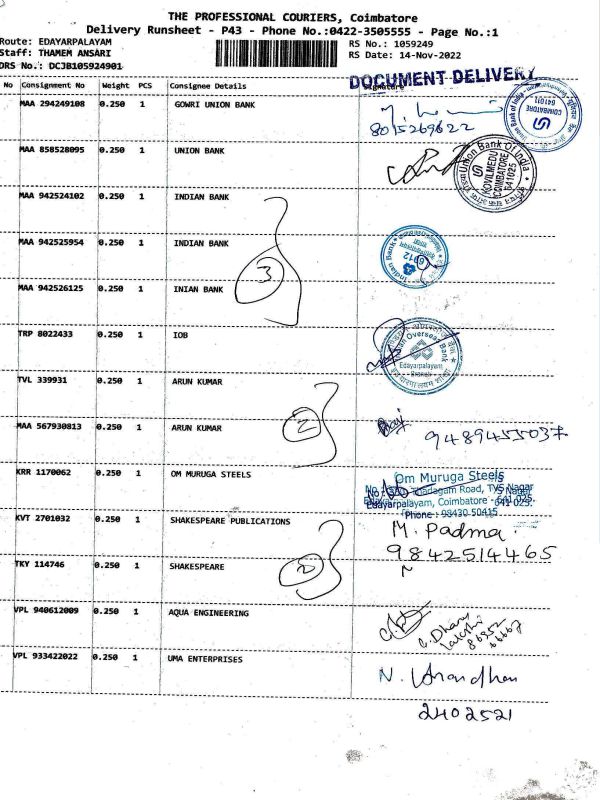 THE PROFESSIONAL COURIERS, Coimbatore
Delivery Runsheet - P43 - Phone No.:0422-3505555 - Page No.:1
Route: EDAYARPALAYAM
RS No.: 1059249
Staff: THAMEM ANSARI
RS Date: 14-Nov-2022
DRS No.: DCJB105924901
DOCUMENT DELIVERY
No Consignment No Weight PCS Consignee Details Signature
MAA 294249108 0.250 1 GOWRI UNION BANK
8015269622
COIMBATORE
641011
MAA 858528095 0.250 1 UNION BANK
Union Bank Of India
KOVILMEDU
COIMBATORE
641025
MAA 942524102 0.250 1 INDIAN BANK
MAA 942525954 0.250 1 INDIAN BANK
Indian Bank
3
MAA 942526125 0.250 1 INIAN BANK
TRP 8022433 0.250 1 IOB
Indian Overseas Bank
Edayarpalayam
Branch
TVL 339931 0.250 1 ARUN KUMAR
2
MAA 567930813 0.250 1 ARUN KUMAR
9489455037
KRR 1170062 0.250 1 OM MURUGA STEELS
Om Muruga Steels
Thadagam Road, TVS Nagar
Edayarpalayam, Coimbatore - 641 025.
Phone : 98430 50415
KVT 2701032 0.250 1 SHAKESPEARE PUBLICATIONS
M. Padma
9842514465
TKY 114746 0.250 1 SHAKESPEARE
2
VPL 940612009 0.250 1 AQUA ENGINEERING
VPL 933422022 0.250 1 UMA ENTERPRISES
2402521